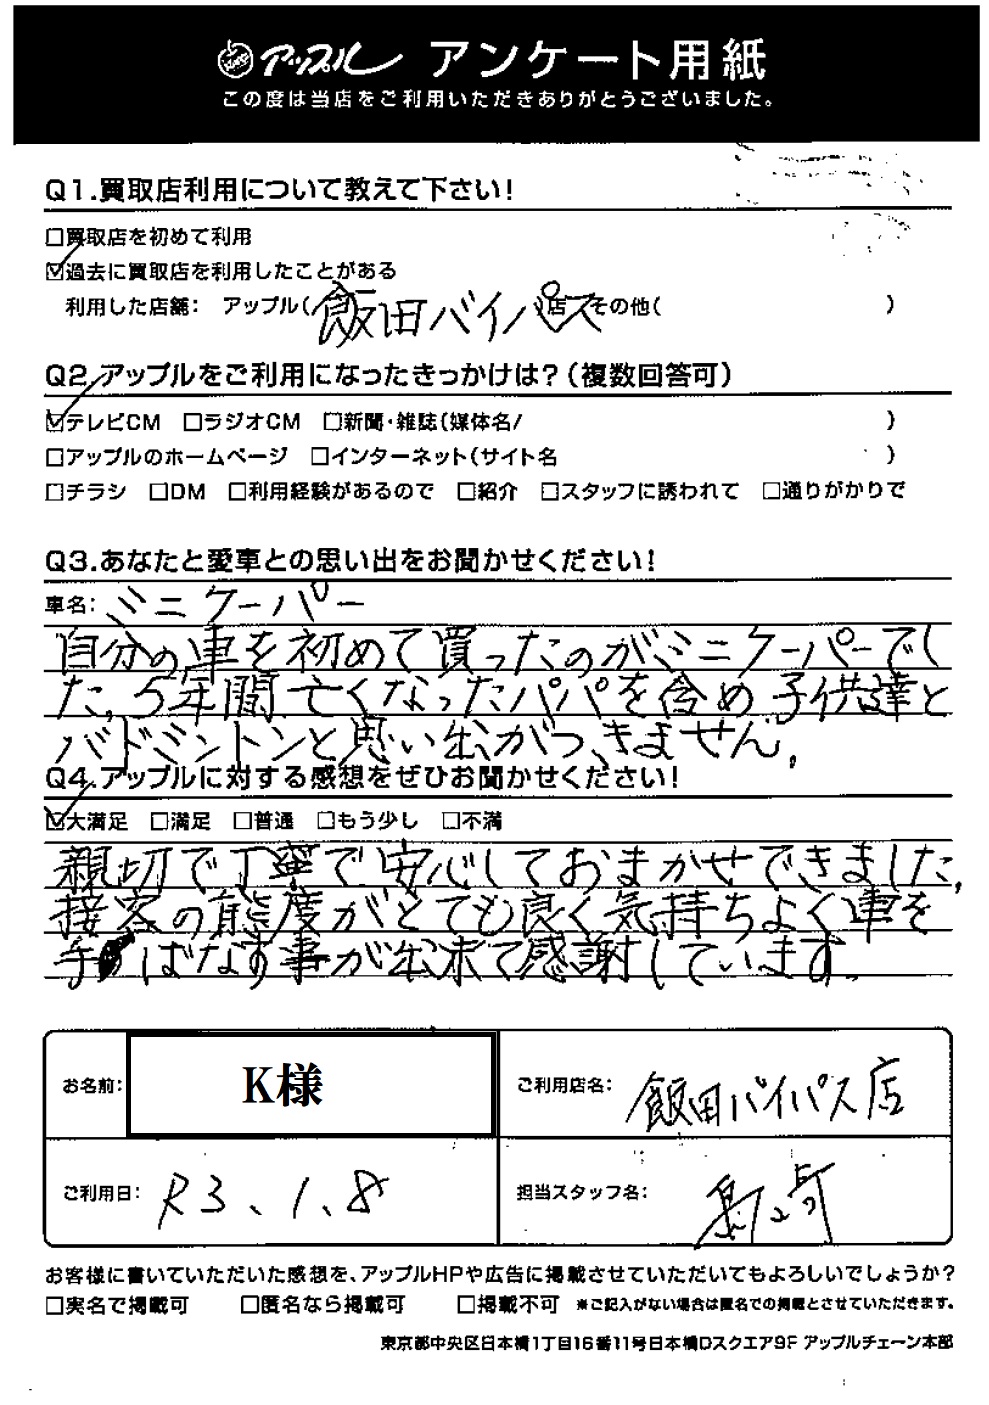 アップル アンケート用紙
この度は当店をご利用いただきありがとうございました。
Q1.買取店利用について教えて下さい!
□買取店を初めて利用
☑過去に買取店を利用したことがある
利用した店舗: アップル(飯田バイパス 店 その他( )
Q2.アップルをご利用になったきっかけは?(複数回答可)
☑テレビCM □ラジオCM □新聞・雑誌(媒体名/ )
□アップルのホームページ □インターネット(サイト名 )
□チラシ □DM □利用経験があるので □紹介 □スタッフに誘われて □通りがかりで
Q3.あなたと愛車との思い出をお聞かせください!
車名:ミニクーパー
自分の車を初めて買ったのがミニクーパーでし
た。5年間 亡くなったパパを含め 子供達と
バドミントンと思い出がつきません。
Q4.アップルに対する感想をぜひお聞かせください!
☑大満足 □満足 □普通 □もう少し □不満
親切で丁寧で安心しておまかせできました。
接客の態度がとても良く気持ちよく車を
手ばなす事が出来て感謝しています。
お名前: K様
ご利用店名: 飯田バイパス店
ご利用日: R3、1、8
担当スタッフ名:
お客様に書いていただいた感想を、アップルHPや広告に掲載させていただいてもよろしいでしょうか?
□実名で掲載可 □匿名なら掲載可 □掲載不可 ※ご記入がない場合は匿名での掲載とさせていただきます。
東京都中央区日本橋1丁目16番11号日本橋Dスクエア9F アップルチェーン本部